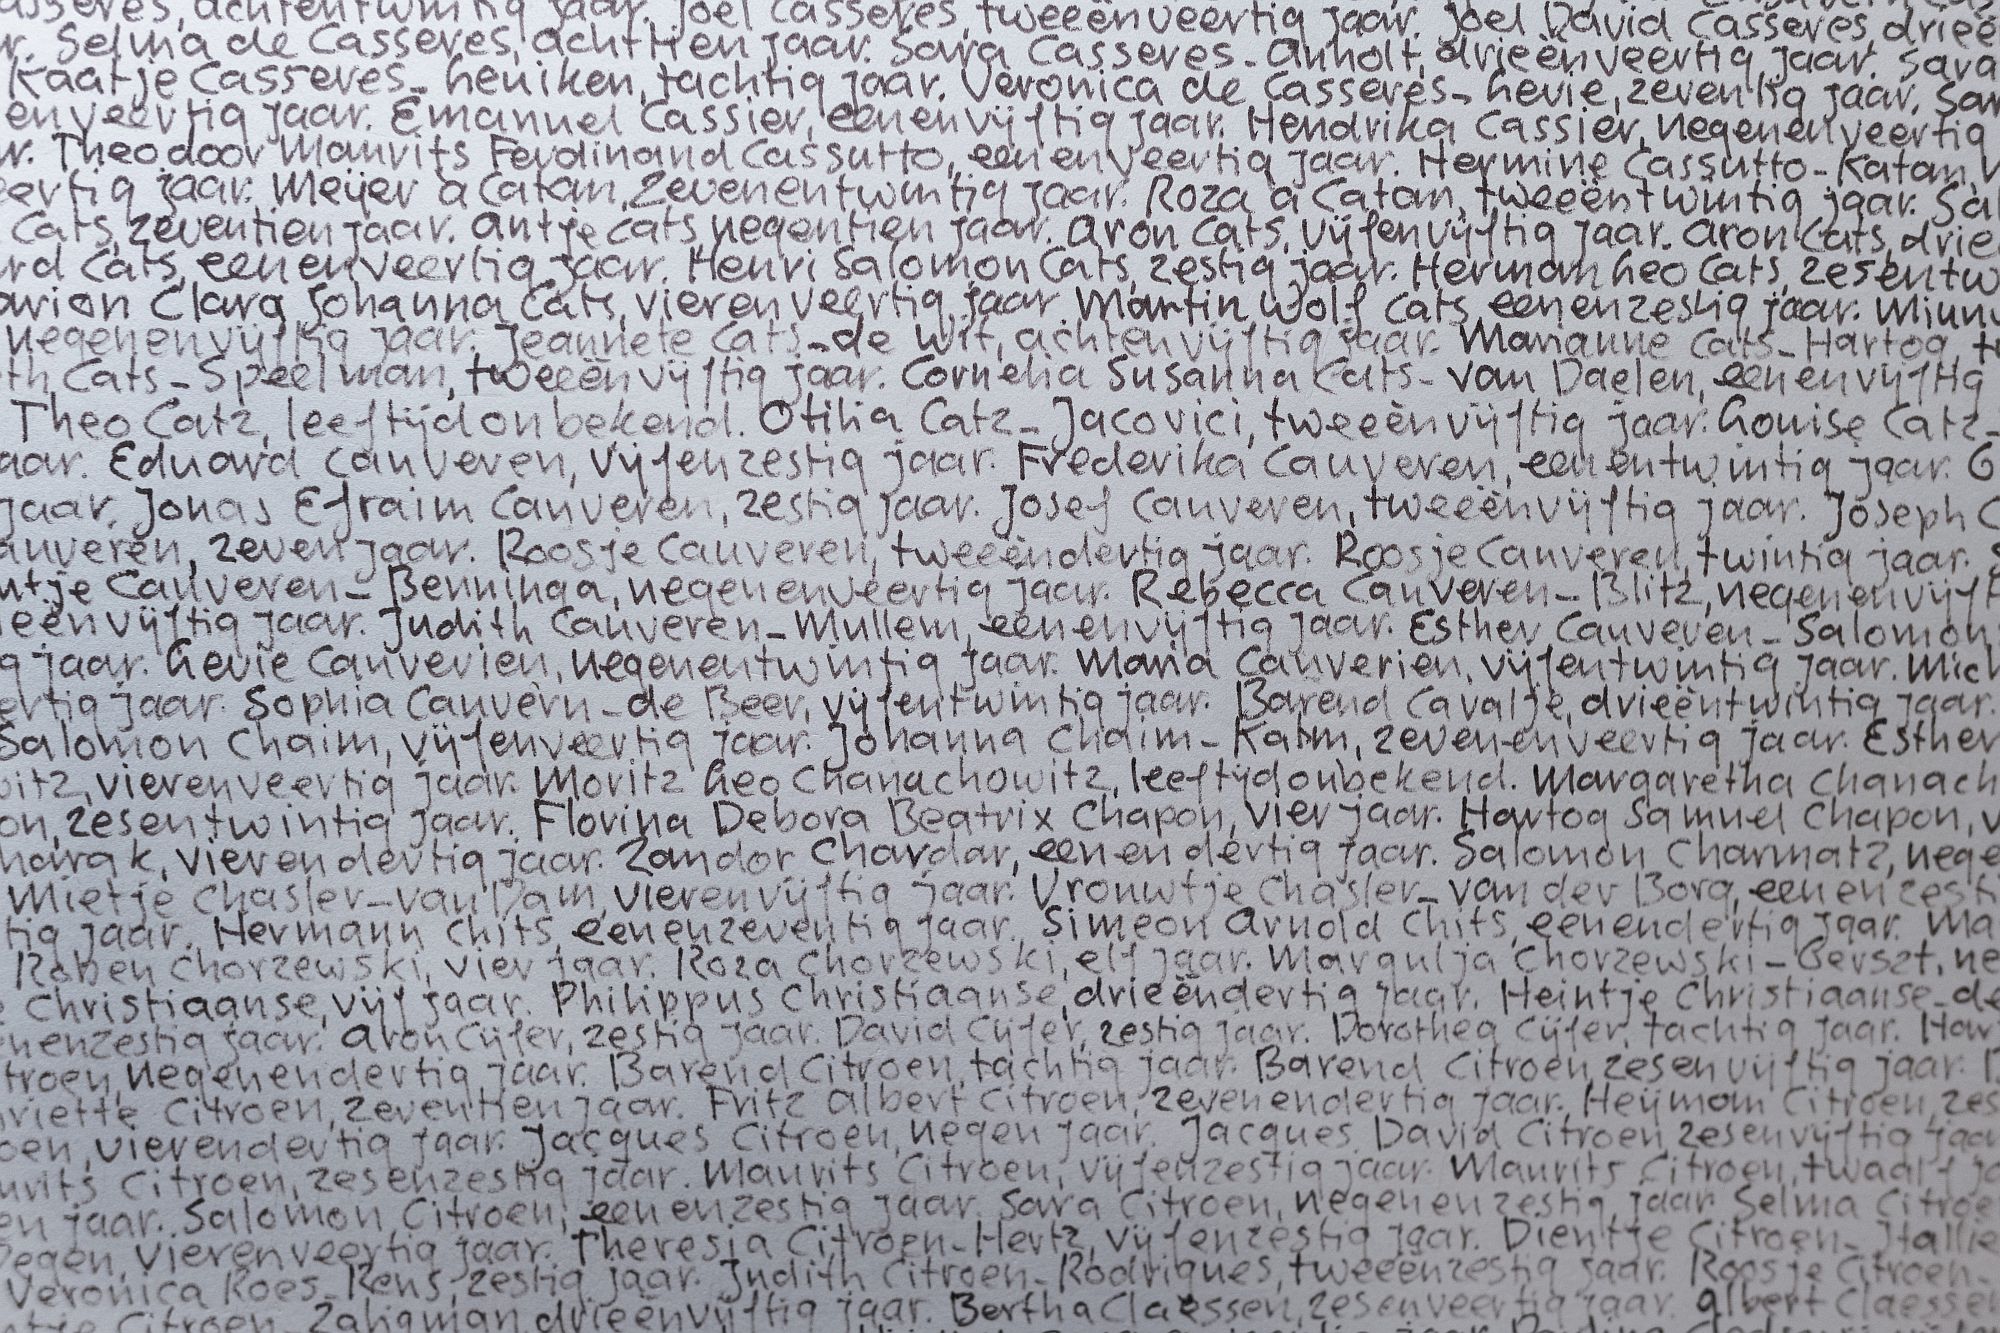 asseres, achtentwintig jaar. Joel Casseres, tweeënveertig jaar. Joel David Casseres, drieë
r. Selma de Casseres, achttien jaar. Sara Casseres-Anholt, drieënveertig jaar. Sara
Kaatje Casseres-Leuiken, tachtig jaar. Veronica de Casseres-Levie, zeventig jaar. Sam
enveertig jaar. Emanuel Cassier, eenenvijftig jaar. Hendrika Cassier, negenenveertig
r. Theodoor Maurits Ferdinand Cassutto, eenenveertig jaar. Hermine Cassutto-Katan, v
eertig jaar. Meijer a Catan, zevenentwintig jaar. Roza a Catan, tweeëntwintig jaar. Sal
Cats, zeventien jaar. Antje Cats, negentien jaar. Aron Cats, vijfenvijftig jaar. Aron Cats, drie
rd Cats, eenenveertig jaar. Henri Salomon Cats, zestig jaar. Herman Leo Cats, zesentw
arion Clara Johanna Cats, vierenveertig jaar. Martin Wolf Cats, eenenzestig jaar. Minn
negenenvijftig jaar. Jeannete Cats-de Wit, achtenvijftig jaar. Marianne Cats-Hartog, tw
th Cats-Speelman, tweeënvijftig jaar. Cornelia Susanna Cats-van Daelen, eenenvijftig
Theo Catz, leeftijd onbekend. Otilia Catz-Jacovici, tweeënvijftig jaar. Louise Catz-
aar. Eduard Cauveren, vijfenzestig jaar. Frederika Cauveren, eenentwintig jaar. G
jaar. Jonas Efraim Cauveren, zestig jaar. Josef Cauveren, tweeënvijftig jaar. Joseph C
auveren, zeven jaar. Roosje Cauveren, tweeëndertig jaar. Roosje Cauveren, twintig jaar. S
ntje Cauveren-Benninga, negenenveertig jaar. Rebecca Cauveren-Blitz, negenenvijft
ieënvijftig jaar. Judith Cauveren-Mullem, eenenvijftig jaar. Esther Cauveren-Salomon
g jaar. Levie Cauverien, negenentwintig jaar. Maria Cauverien, vijfentwintig jaar. Mich
ertig jaar. Sophia Cauvern-de Beer, vijfentwintig jaar. Barend Cavalje, drieëntwintig jaar.
Salomon Chaim, vijfenveertig jaar. Johanna Chaim-Kalm, zevenenveertig jaar. Esther
witz, vierenveertig jaar. Moritz Leo Chanachowitz, leeftijd onbekend. Margaretha Chanach
on, zesentwintig jaar. Florina Debora Beatrix Chapon, vier jaar. Hartog Samuel Chapon, v
harak, vierendertig jaar. Zandor Chardar, eenendertig jaar. Salomon Charmatz, nege
Mietje Chasler-van Dam, vierenvijftig jaar. Vronwtje Chasler-van der Borg, eenenzesti
tig jaar. Hermann Chits, eenenzeventig jaar. Simeon Arnold Chits, eenendertig jaar. Ma
Roben Chorzewski, vier jaar. Roza Chorzewski, elf jaar. Margulja Chorzewski-Gerszt, ne
e Christiaanse, vijf jaar. Philippus Christiaanse, drieëndertig jaar. Heintje Christiaanse-de
nenzestig jaar. Aron Cijfer, zestig jaar. David Cijfer, zestig jaar. Dorothea Cijfer, tachtig jaar. Har
troen, negenendertig jaar. Barend Citroen, tachtig jaar. Barend Citroen, zesenvijftig jaar. B
nriette Citroen, zeventien jaar. Fritz Albert Citroen, zevenendertig jaar. Heijman Citroen, zes
oen, vierendertig jaar. Jacques Citroen, negen jaar. Jacques David Citroen, zesenvijftig jaar
urits Citroen, zesenzestig jaar. Maurits Citroen, vijfenzestig jaar. Maurits Citroen, twaalf ja
en jaar. Salomon Citroen, eenenzestig jaar. Sara Citroen, negenenzestig jaar. Selma Citroe
Degen, vierenveertig jaar. Theresia Citroen-Hertz, vijfenzestig jaar. Dientje Citroen-Hallie
Veronica Roes-Rens, zestig jaar. Judith Citroen-Rodrigues, tweeënzestig jaar. Roosje Citroen-
ntje Citroen-Zaligman, drieënvijftig jaar. Bertha Claessen, zesenveertig jaar. Albert Claessen